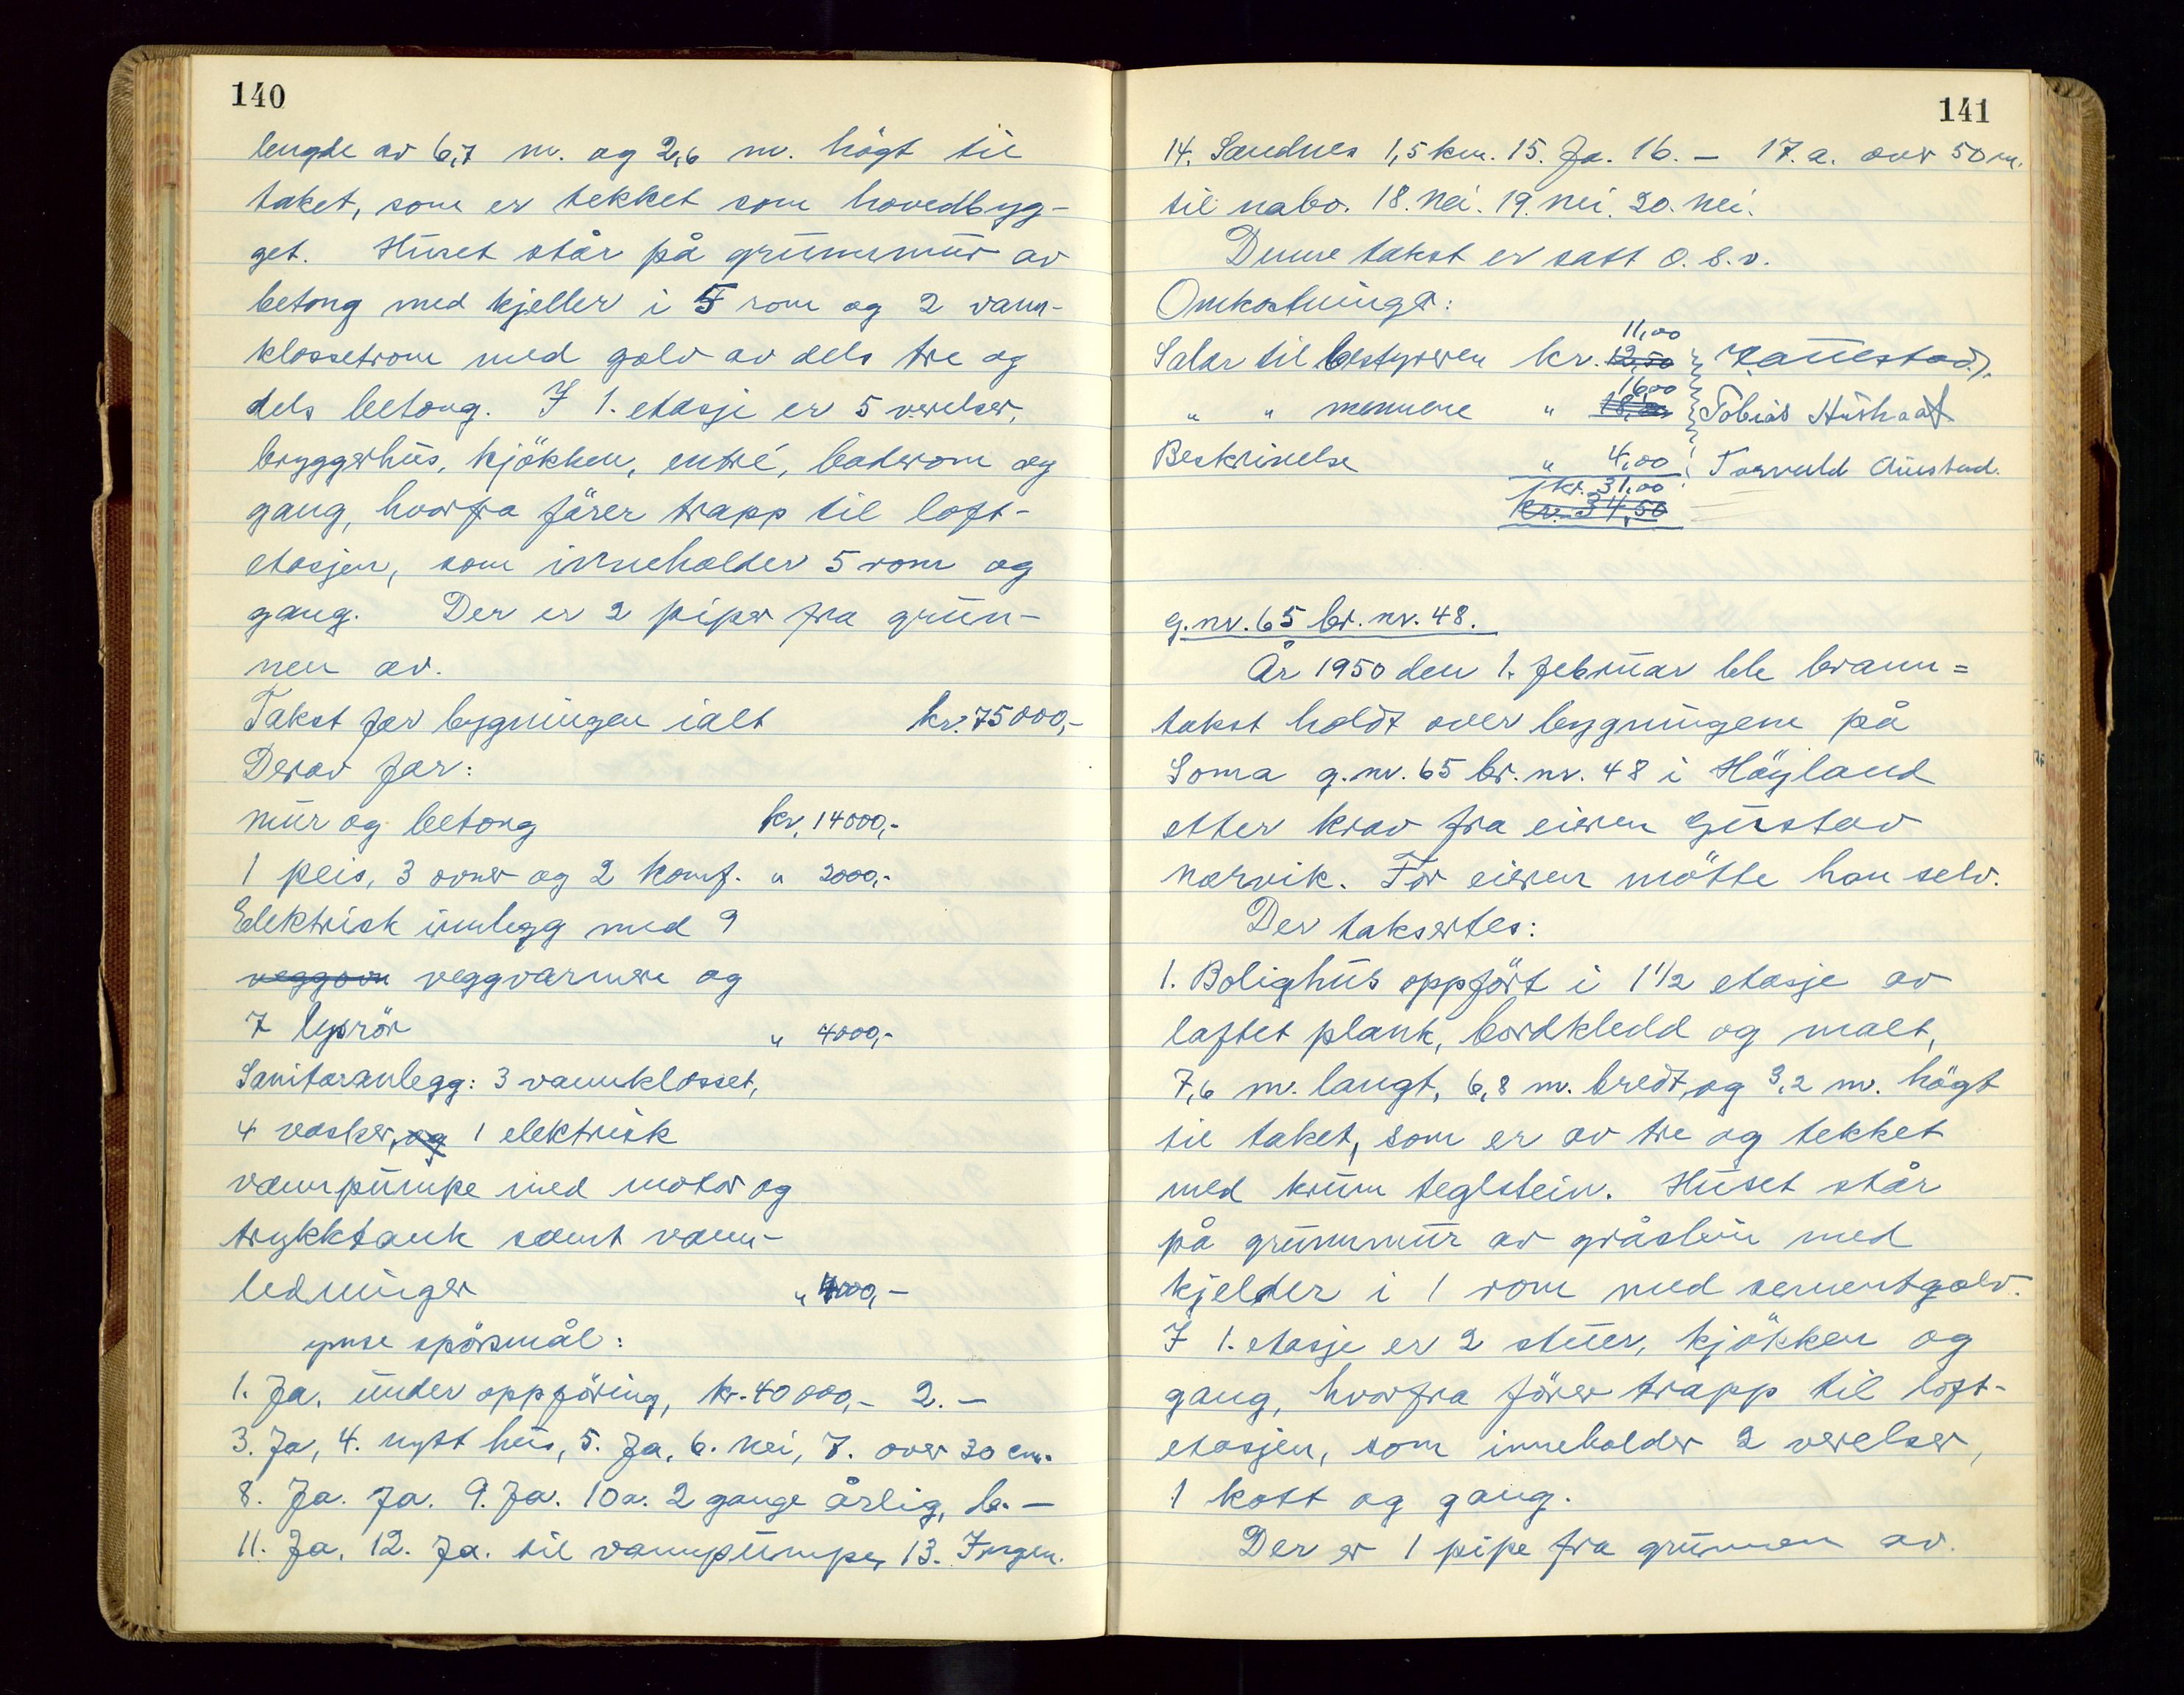 140
lengde av 6,7 m. og 2,6 m. högt til
taket, som er tekket som hovedbyg-
get. Huset står på grunnmur av
betong med kjeller i 5 rom og 2 vann-
klossetrom med golv av dels tre og
dels betong. I 1. etasje er 5 verelser,
bryggerhus, kjökken, entré, baderom og
gang, hvorfra förer trapp til loft-
etasjen, som inneholder 5 rom og
gang. Der er 2 piper fra grun-
nen av.
Takst for bygningen ialt kr. 75000,-
Derav for:
mur og betong kr. 14000,-
1 peis, 3 ovner og 2 komf. " 2000,-
Elektrisk innlegg med 9
veggovn veggvarmere og
7 lysrör " 4000,-
Sanitæranlegg: 3 vannklosset,
4 vasker, og 1 elektrisk
vannpumpe med motor og
trykktank samt vann-
ledninger " 4000,-
ymse spörsmål:
1. Ja, under oppföring, kr. 40000,- 2. -
3. Ja, 4. nytt hus, 5. Ja, 6. nei, 7. over 20 cm.
8. Ja. Ja. 9. Ja. 10a. 2 gange årlig, b. -
11. Ja, 12. Ja. til vannpumpe, 13. Ingen.
141
14. Sandnes 1,5 km. 15. Ja. 16. - 17. a. over 50 m.
til nabo. 18. nei. 19. nei. 20. nei.
Denne takst er satt o. s. v.
Omkostninger:
11,00
Salar til bestyreren kr. 12,50
16,00
" " mennene " 18,00 Tobias
Beskrivelse " 4,00 Torvald Austad.
kr. 31,00
kr. 34,50
g.nr. 65 br. nr. 48.
År 1950 den 1. februar ble brann=
takst holdt over bygningene på
Soma g.nr. 65 br. nr. 48 i Höyland
etter krav fra eieren Gustav
Norvik. For eieren mötte han selv.
Der taksertes:
1. Bolighus oppfört i 1 1/2 etasje av
laftet plank, bordkledd og malt,
7,6 m. langt, 6,8 m. bredt, og 3,2 m. högt
til taket, som er av tre og tekket
med krum teglstein. Huset står
på grunnmur av gråstein med
kjelder i 1 rom med sementgolv.
I 1. etasje er 2 stuer, kjökken og
gang, hvorfra förer trapp til loft-
etasjen, som inneholder 2 verelser,
1 kott og gang.
Der er 1 pipe fra grunnen av.